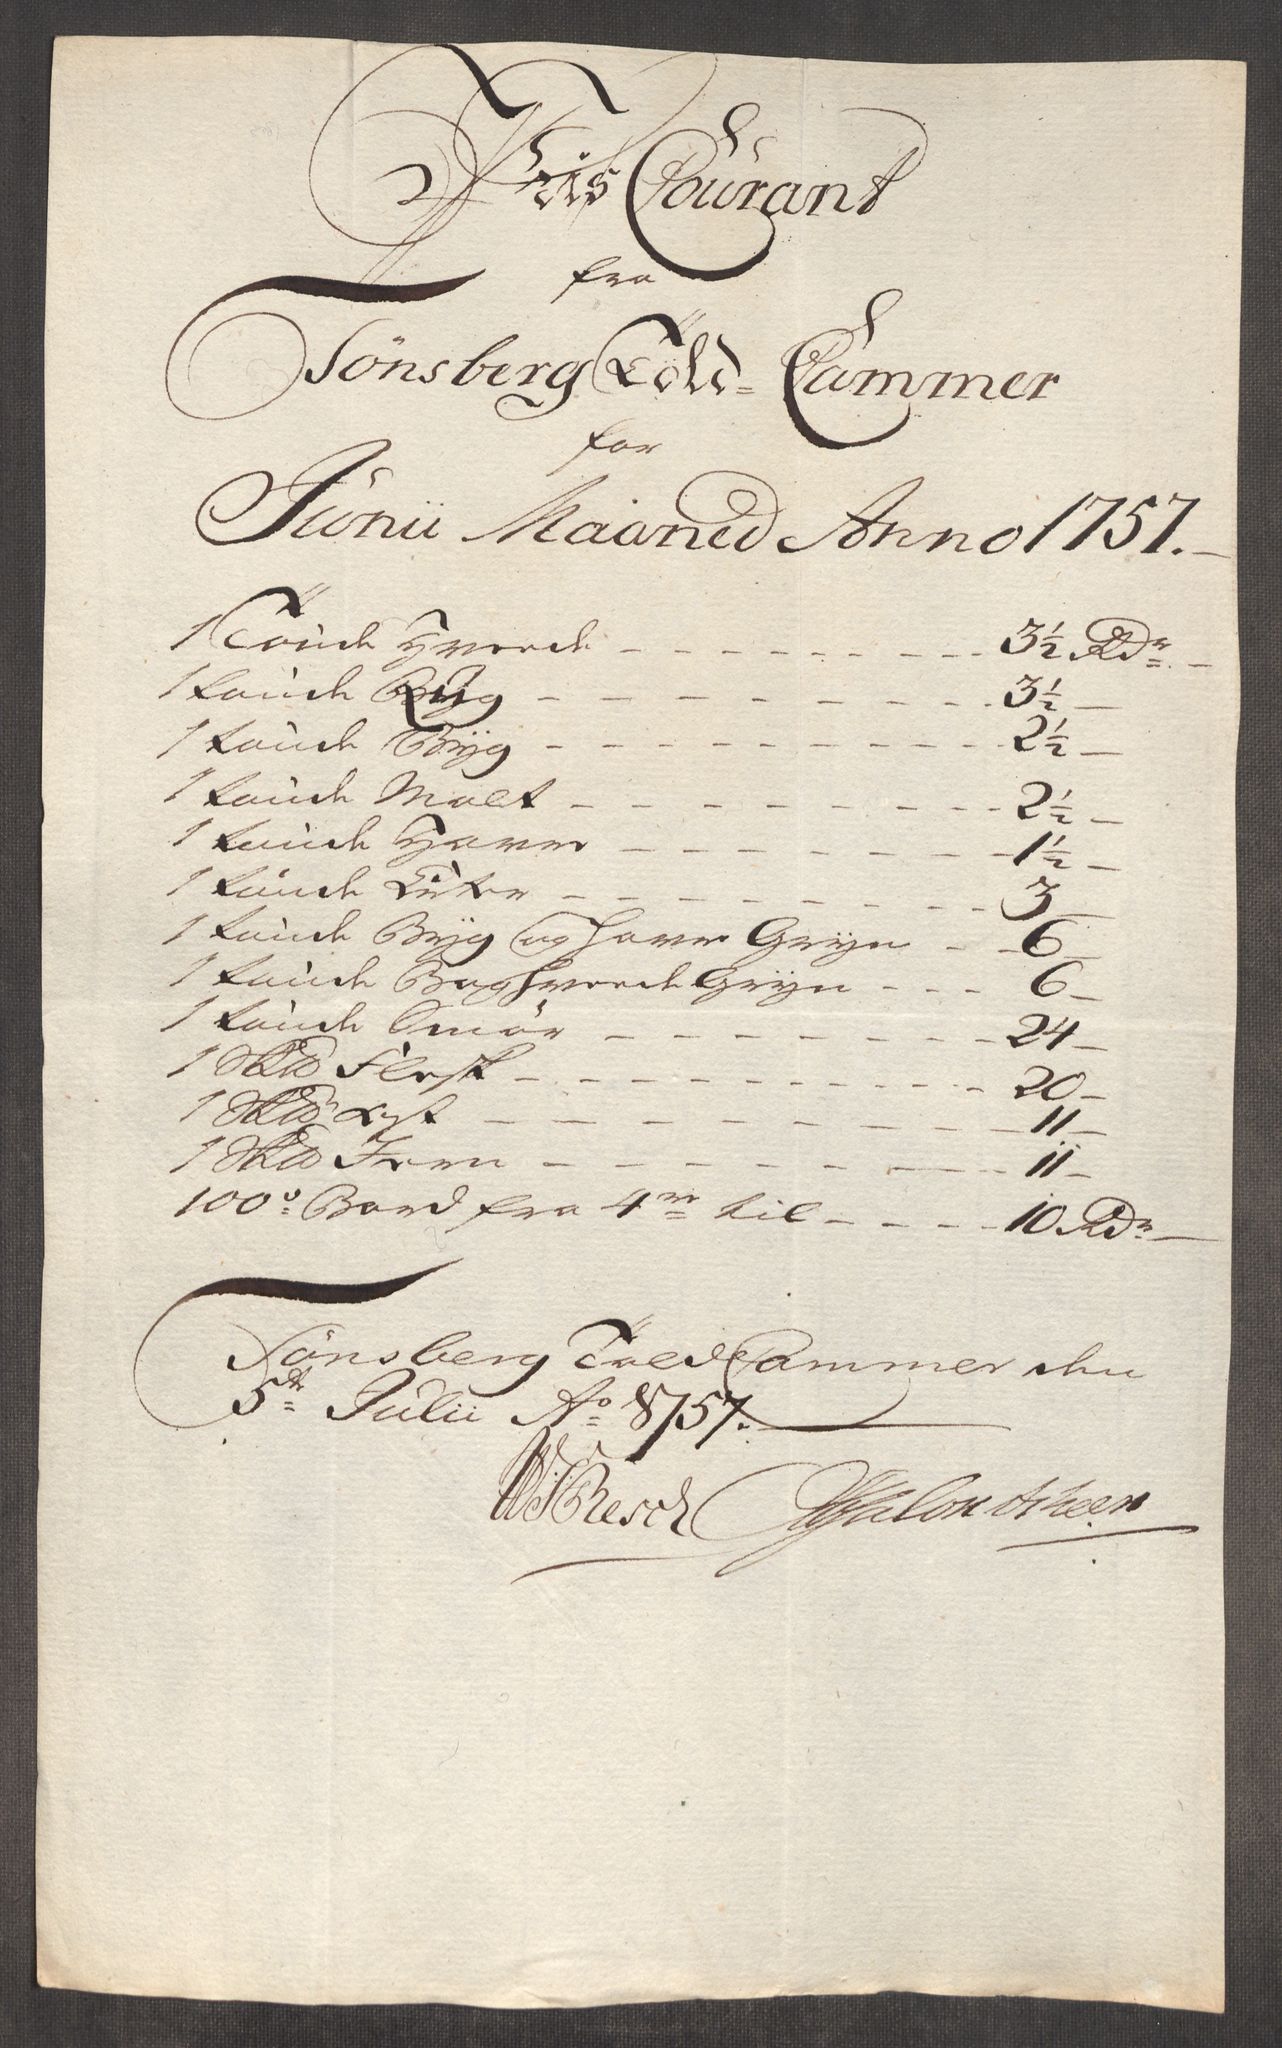 Pris Courant
fra
Tönsberg Told-Cammer
for
Junii Maaned Anno 1757.
1 Tönde Hvede - 3½ Rdr
1 tönde Rug - 3½
1 tönde Byg - 2½
1 tönde Malt - 2½
1 tönde Havre - 1½
1 tönde Erter - 3
1 tönde Byg og Havre Gryn - 6
1 tönde Boghvede Gryn - 6
1 tönde Smör - 24
1 Skd Flesk - 20
1 Skd - 11
1 Skd Jern - 11
100de Bord fra 4re til - 10 Rdr
Tönsberg Told Cammer den
5te Julii Ao 1757.
Resch